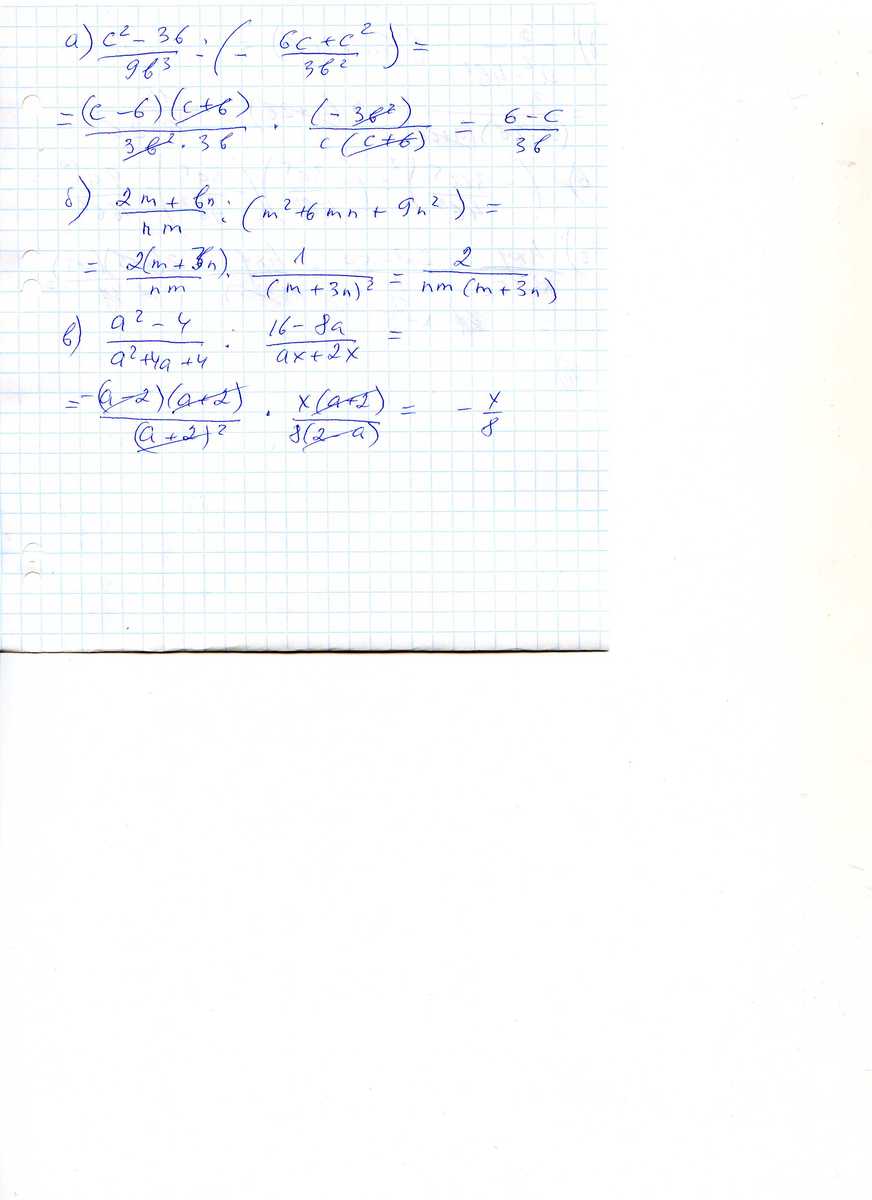 а) (c² - 36)/(9b³) : (- (6c + c²)/(3b²)) =
= ((c - 6)(c + 6))/(3b² · 3b) · (-3b²)/(c(c + 6)) = (6 - c)/(3b)
б) (2m + 6n)/(nm) : (m² + 6mn + 9n²) =
= (2(m + 3n))/(nm) · 1/(m + 3n)² = 2/(nm(m + 3n))
в) (a² - 4)/(a² + 4a + 4) : (16 - 8a)/(ax + 2x) =
= (-(a - 2)(a + 2))/((a + 2)²) · (x(a + 2))/(8(2 - a)) = - x/8